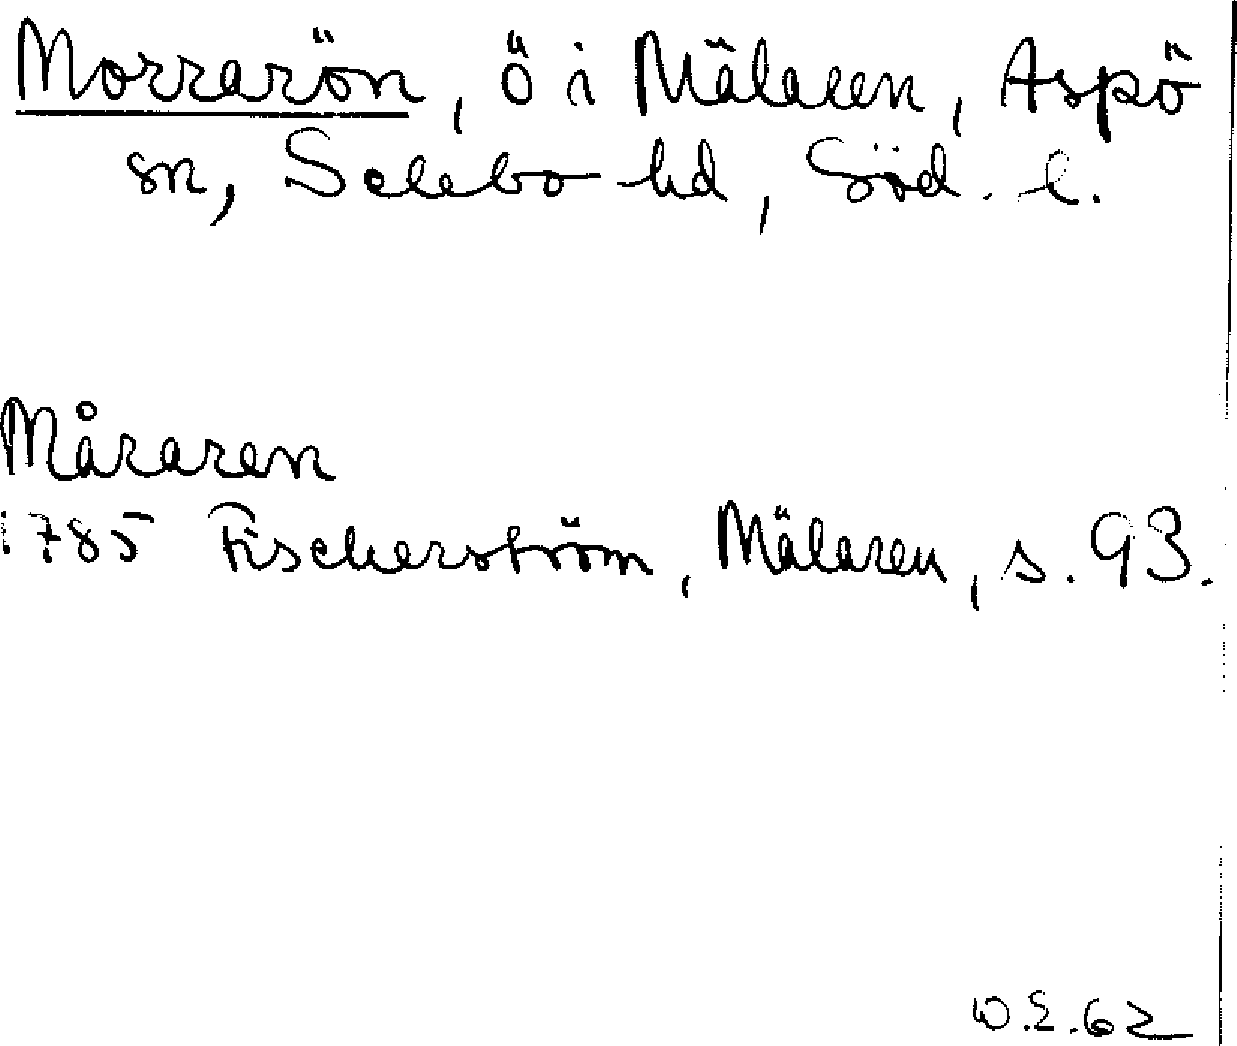 Morrarön, ö i Mälaren, Aspö
sn, Selebo hd, Söd. l.
Måraren
1785 Fischerström, Mälaren, s. 93.
W.E.62